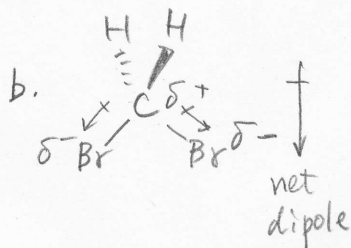 H H
b.
C δ+
δ- Br Br δ-
net
dipole